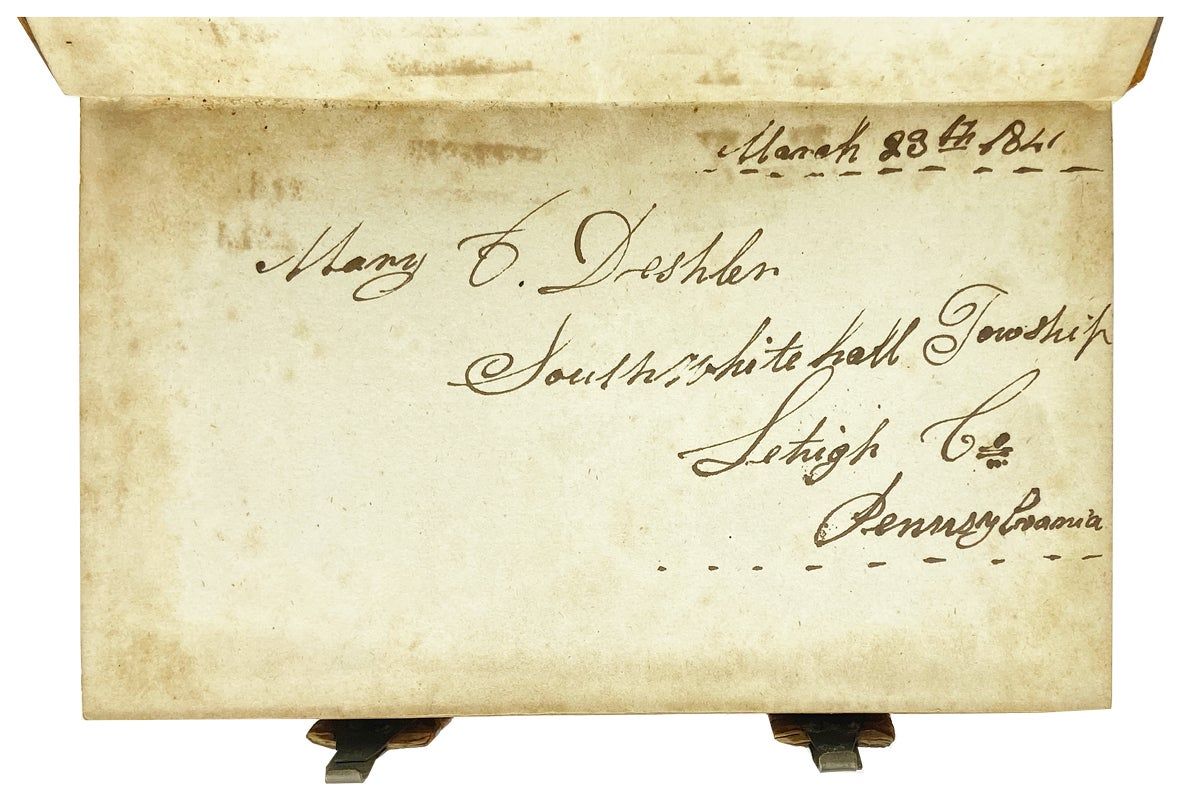 March 23th 1841
Mary C. Deshler
Southwhitehall Towship
Lehigh Co
Pennsylvania